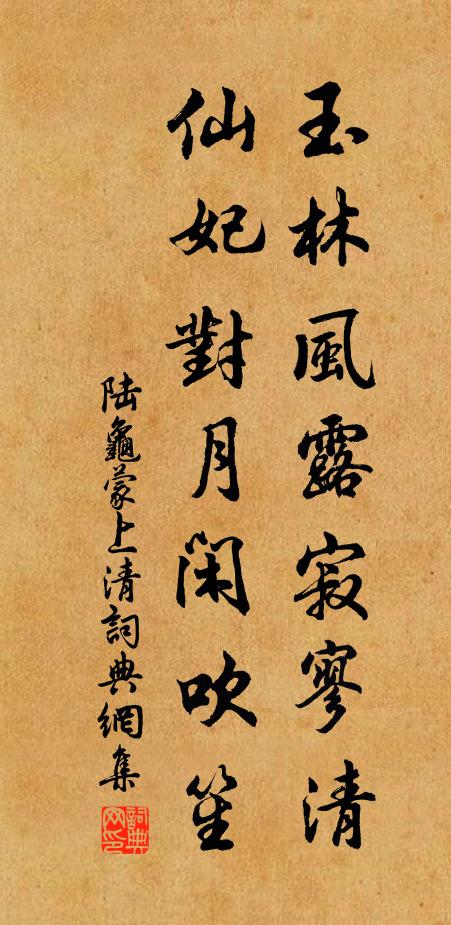 玉林風露寂寥清
仙妃對月閑吹笙
陆龜蒙上清詞典網集
詞典网印